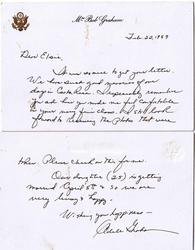 Mrs. Bob Graham
Feb 20, 1989
Dear Elsie,
It was so nice to get your letter.
We have such good memories of our
days in Costa Rica. I especially remember
you as how you made me feel comfortable
in your very fine home. I also look
forward to receiving the photos that were
taken. Please check on the frame.
Our daughter (25) is getting
married April 8th so we are
very busy & happy.
Wishing you happiness —
Adele Graham